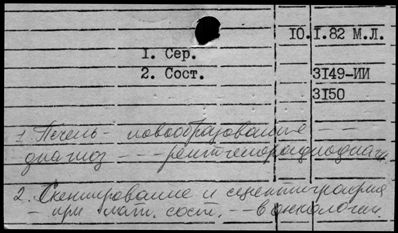 10.I.82 М.Л.
1. Сер.
2. Сост. 3149-ИИ
3150
1. Печень - новообразование -
диагноз - - - рентгенорадиодиагн.
2. Сканирование и сцинтиграфия
- при пат. сост. - - в онкологии